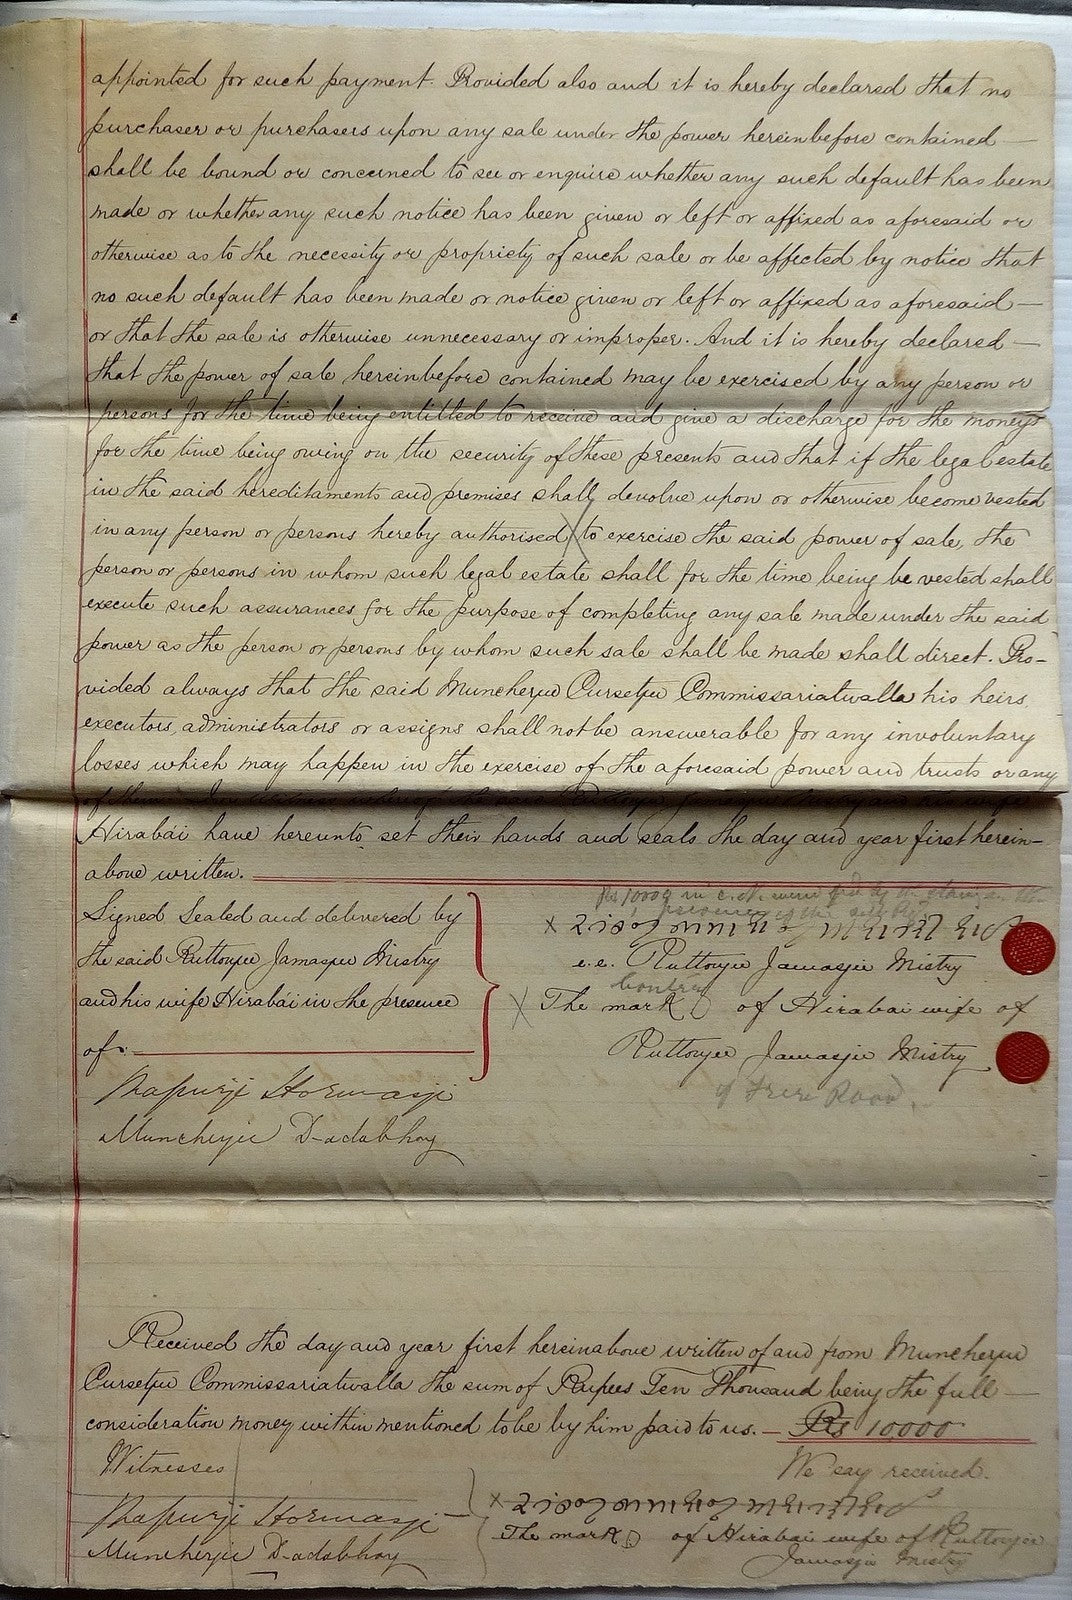 appointed for such payment. Provided also and it is hereby declared that no
purchaser or purchasers upon any sale under the power hereinbefore contained —
shall be bound or concerned to see or enquire whether any such default has been
made or whether any such notice has been given or left or affixed as aforesaid or
otherwise as to the necessity or propriety of such sale or be affected by notice that
no such default has been made or notice given or left or affixed as aforesaid —
or that the sale is otherwise unnecessary or improper. And it is hereby declared —
that the power of sale hereinbefore contained may be exercised by any person or
persons for the time being entitled to receive and give a discharge for the moneys
for the time being owing on the security of these presents and that if the legal estate
in the said hereditaments and premises shall devolve upon or otherwise become vested
in any person or persons hereby authorised to exercise the said power of sale, the
person or persons in whom such legal estate shall for the time being be vested shall
execute such assurances for the purpose of completing any sale made under the said
power as the person or persons by whom such sale shall be made shall direct. Pro-
vided always that the said Muncherjee Cursetjee Commissariatwalla his heirs,
executors, administrators or assigns shall not be answerable for any involuntary
losses which may happen in the exercise of the aforesaid power and trusts or any
of them
Hirabái have hereunto set their hands and seals the day and year first herein-
above written.
Signed Sealed and delivered by
the said Ruttonjee Jamasjee Mistry
and his wife Hirabái in the presence
of:
Rs 10000 in
X
i.e. Ruttonjee Jamasjee Mistry
X The mark of Hirabai wife of
Ruttonjee Jamasjee Mistry
of Frere Road.
Muncherjee Dadabhoy
Received the day and year first hereinabove written of and from Muncherjee
Cursetjee Commissariatwalla the sum of Rupees Ten Thousand being the full —
consideration money within mentioned to be by him paid to us. — Rs 10000
We say received.
Witnesses
X
The mark of Hirabai wife of Ruttonjee
Jamasjee Mistry
Muncherjee Dadabhoy